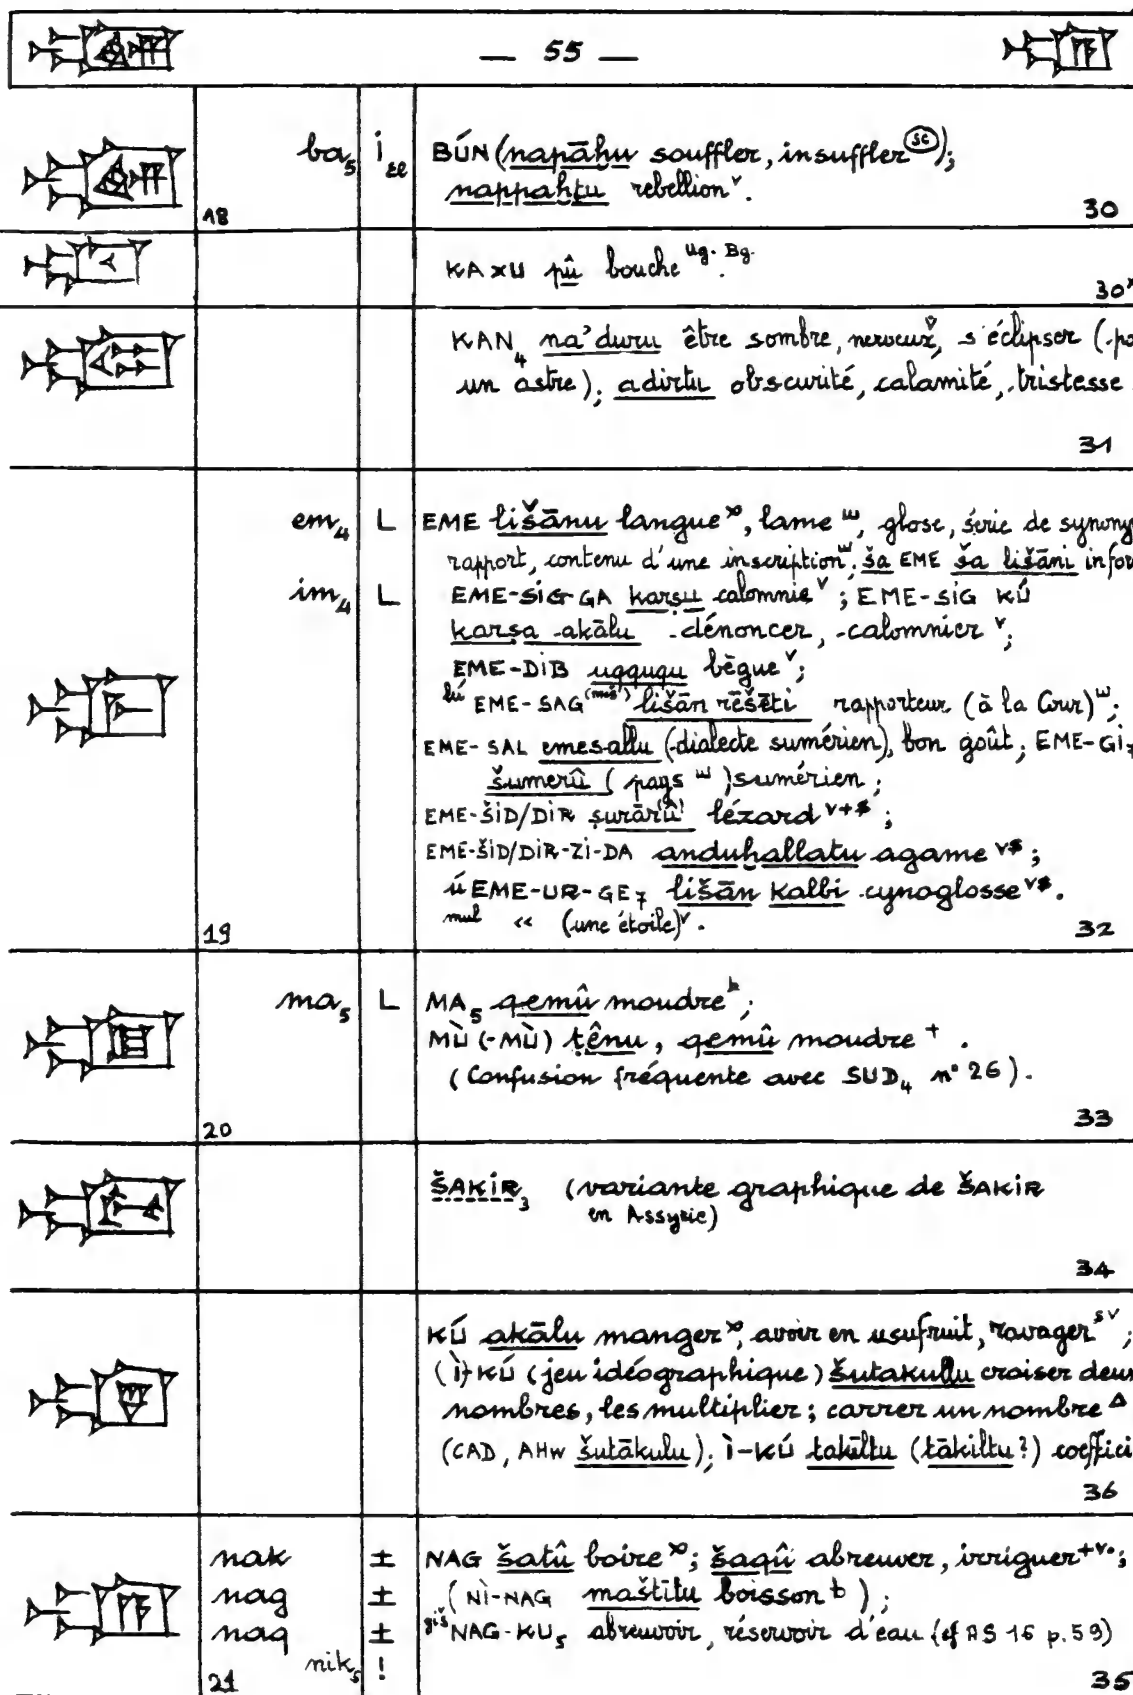 — 55 —
ba₅ i BÚN (napāḫu souffler, insuffler (sc));
nappaḫtu rebellion ᵛ.
18 30
KA×U pû bouche ᵁᵍ· ᴮᵍ·
30*
KAN₄ na'duru être sombre, nerveux ᵛ, s'éclipser (po
un astre); adirtu obscurité, calamité, tristesse
31
em₄ L EME lišānu langue, lame ʷ, glose, série de synony
rapport, contenu d'une inscription ʷ; ša EME ša lišāni infor
im₄ L EME-SIG-GA karṣu calomnie ᵛ; EME-SIG KÚ
karṣa akālu dénoncer, calomnier ᵛ;
EME-DIB uqququ bègue ᵛ;
lú EME-SAG(meš) lišān rēšēti rapporteur (à la Cour) ʷ;
EME-SAL emesallu (dialecte sumérien), bon goût; EME-GI₇
šumerû (pays ʷ) sumérien;
EME-ŠID/DIR ṣurārû lézard ᵛ⁺$;
EME-ŠID/DIR-ZI-DA anduḫallatu agame ᵛ$;
ú EME-UR-GE₇ lišān kalbi cynoglosse ᵛ$.
mul « (une étoile) ᵛ.
19 32
ma₅ L MA₅ qemû moudre ᵏ;
MÙ (-MÙ) ṭênu, qemû moudre ⁺.
(Confusion fréquente avec SUD₄ n° 26).
20 33
ŠAKIR₃ (variante graphique de ŠAKIR
en Assyrie)
34
KÚ akālu manger, avoir en usufruit, ravager ˢᵛ;
(Ì)-KÚ (jeu idéographique) šutakullu croiser deux
nombres, les multiplier; carrer un nombre ᐞ
(CAD, AHw šutākulu); Ì-KÚ takiltu (tākiltu?) coeffici
36
nak ± NAG šatû boire; šaqû abreuver, irriguer ⁺ᵛ·;
nag ± (NÌ-NAG maštitu boisson ᵇ);
naq ± giš NAG-KU₅ abreuvoir, réservoir d'eau (cf AS 16 p. 59)
nik₅ !
21 35